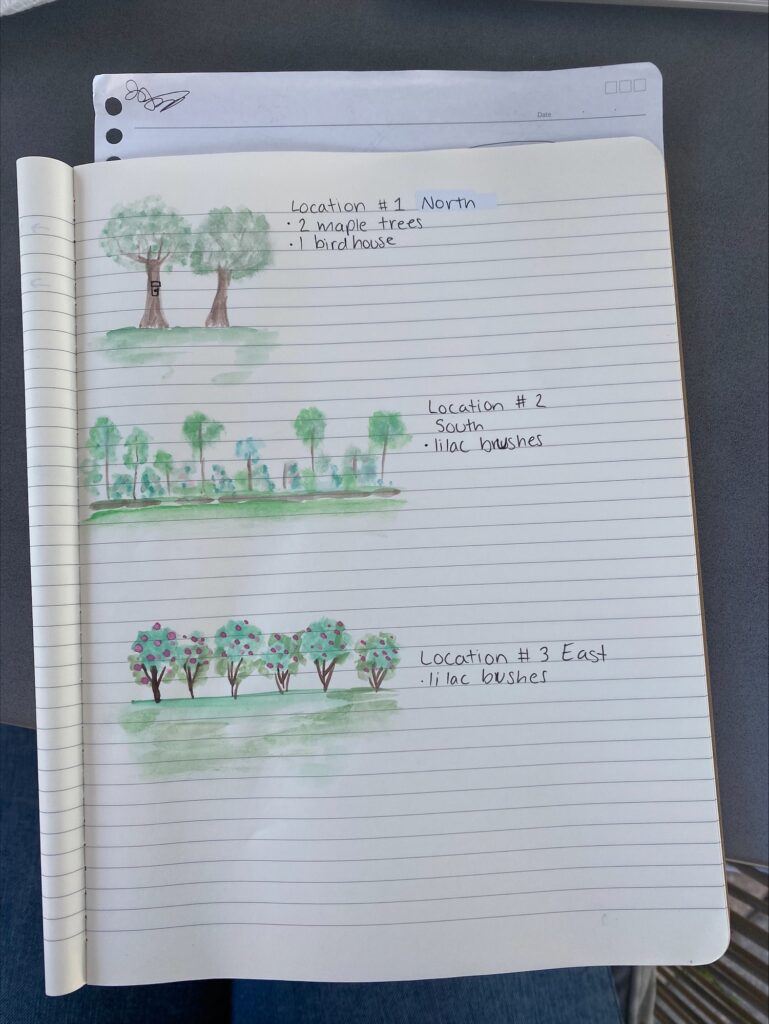 Date
Location # 1 North
· 2 maple trees
· 1 birdhouse
Location # 2
South
· lilac brushes
Location # 3 East
· lilac bushes